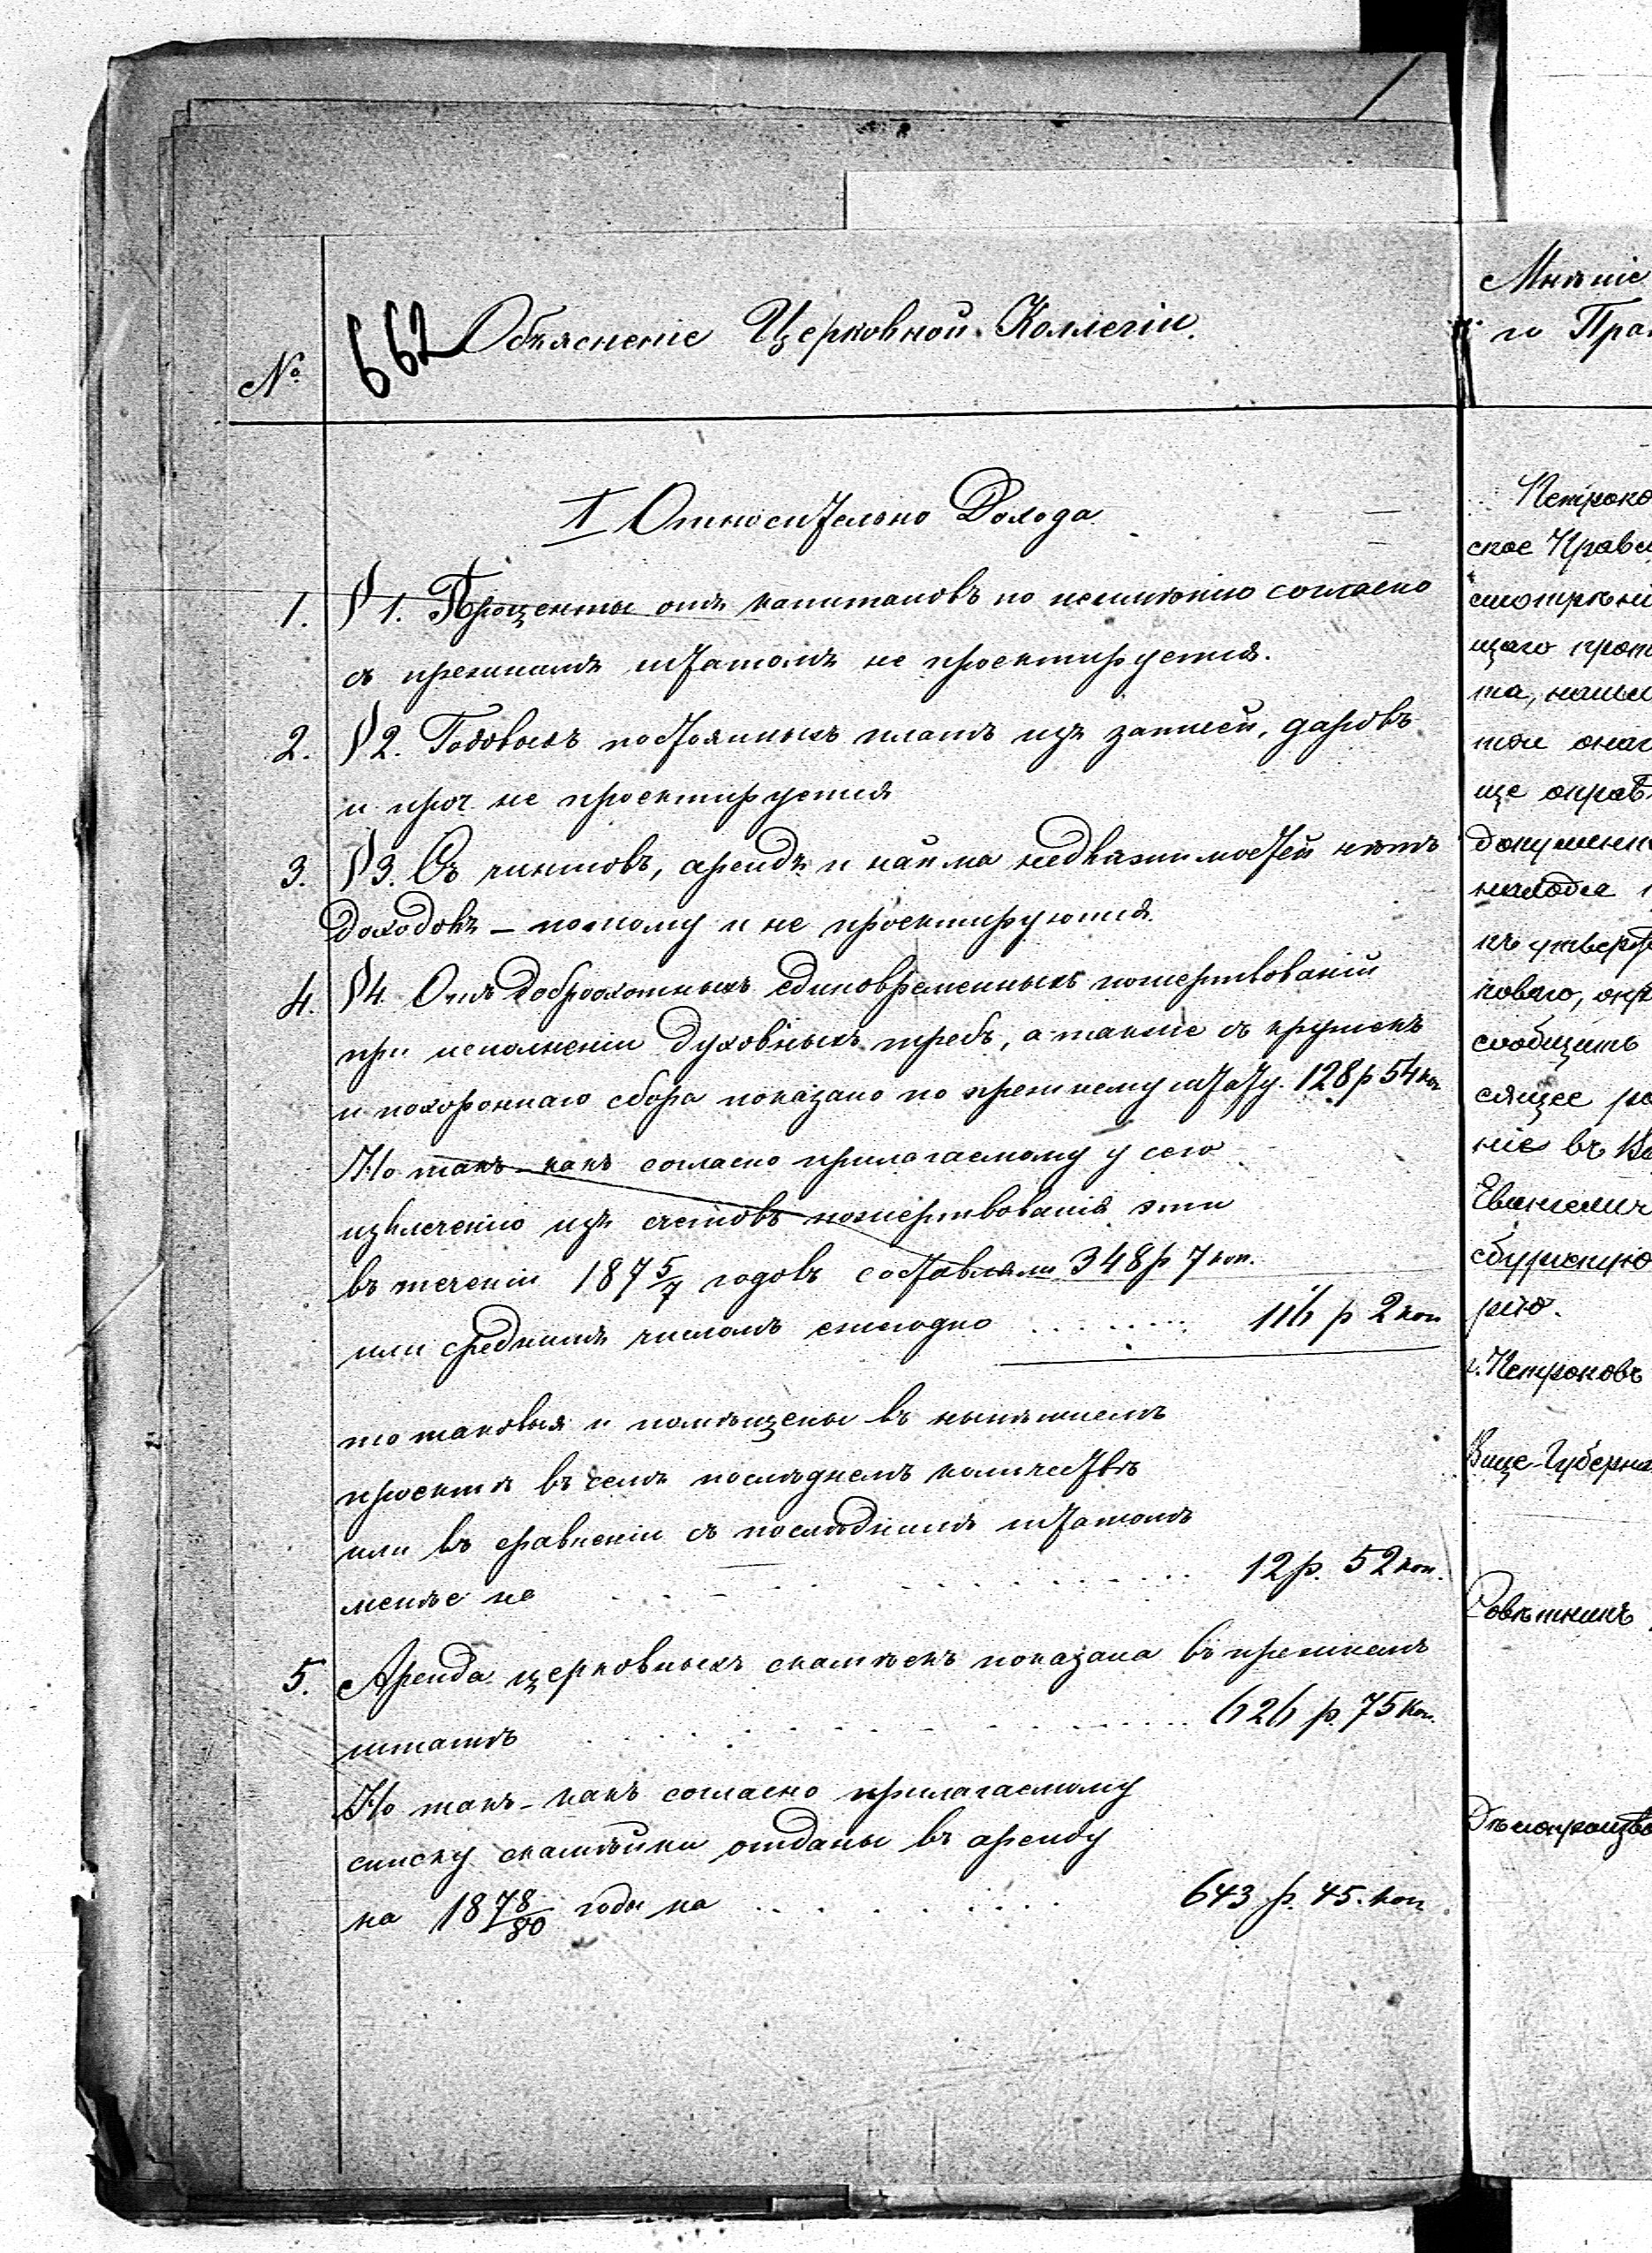 662
№
Объясненіе Церковной Коллегіи.
I Относительно Дохода
1. § 1. Проценты отъ капиталовъ по неимѣнію согласно
съ прежнимъ штатомъ не проектируется.
2. § 2. Годовыхъ постоянныхъ платъ изъ записей, даровъ
и проч. не проектируется
3. § 3. Съ чиншовъ, арендъ и найма недвижимостей нѣтъ
доходовъ – потому и не проектируются.
4. § 4. Отъ доброхотныхъ единовременныхъ пожертвованій
при исполненіи духовныхъ требъ, а также съ кружекъ
и похороннаго сбора показано по прежнему штату. 128 р 54 коп
Но такъ-какъ согласно прилагаемому у сего
извлеченію изъ счетовъ пожертвованія эти
въ теченіи 187 5/7 годовъ составляли 348 р 7 коп.
или среднимъ числомъ ежегодно . . . . . . . . 116 р 2 коп
то таковыя и помѣщены въ нынѣшнемъ
проектѣ въ семъ послѣднемъ количествѣ
или въ сравненіи съ послѣднимъ штатомъ
менѣе на . . . . . . . . . . . . 12 р. 52 коп.
5. Аренда церковныхъ скамѣекъ показана въ прежнемъ
штатѣ . . . . . . . . . . . . 626 р. 75 коп.
Но такъ-какъ согласно прилагаемому
списку скамѣйки отданы въ аренду
на 18 78/80 годы на . . . . . . . . 643 р. 45. коп
Мнѣніе
го Пра
Петроко
ское Правл
смотрѣні
щаго
та,
ще оправ
документ
къ утверж
коваго,
сообщить
сящее ра
ніе въ Ва
Евангелич
сбургскую
рію.
г. Петроковъ
Вице-Губерна
Совѣтникъ
Дѣлопроизво